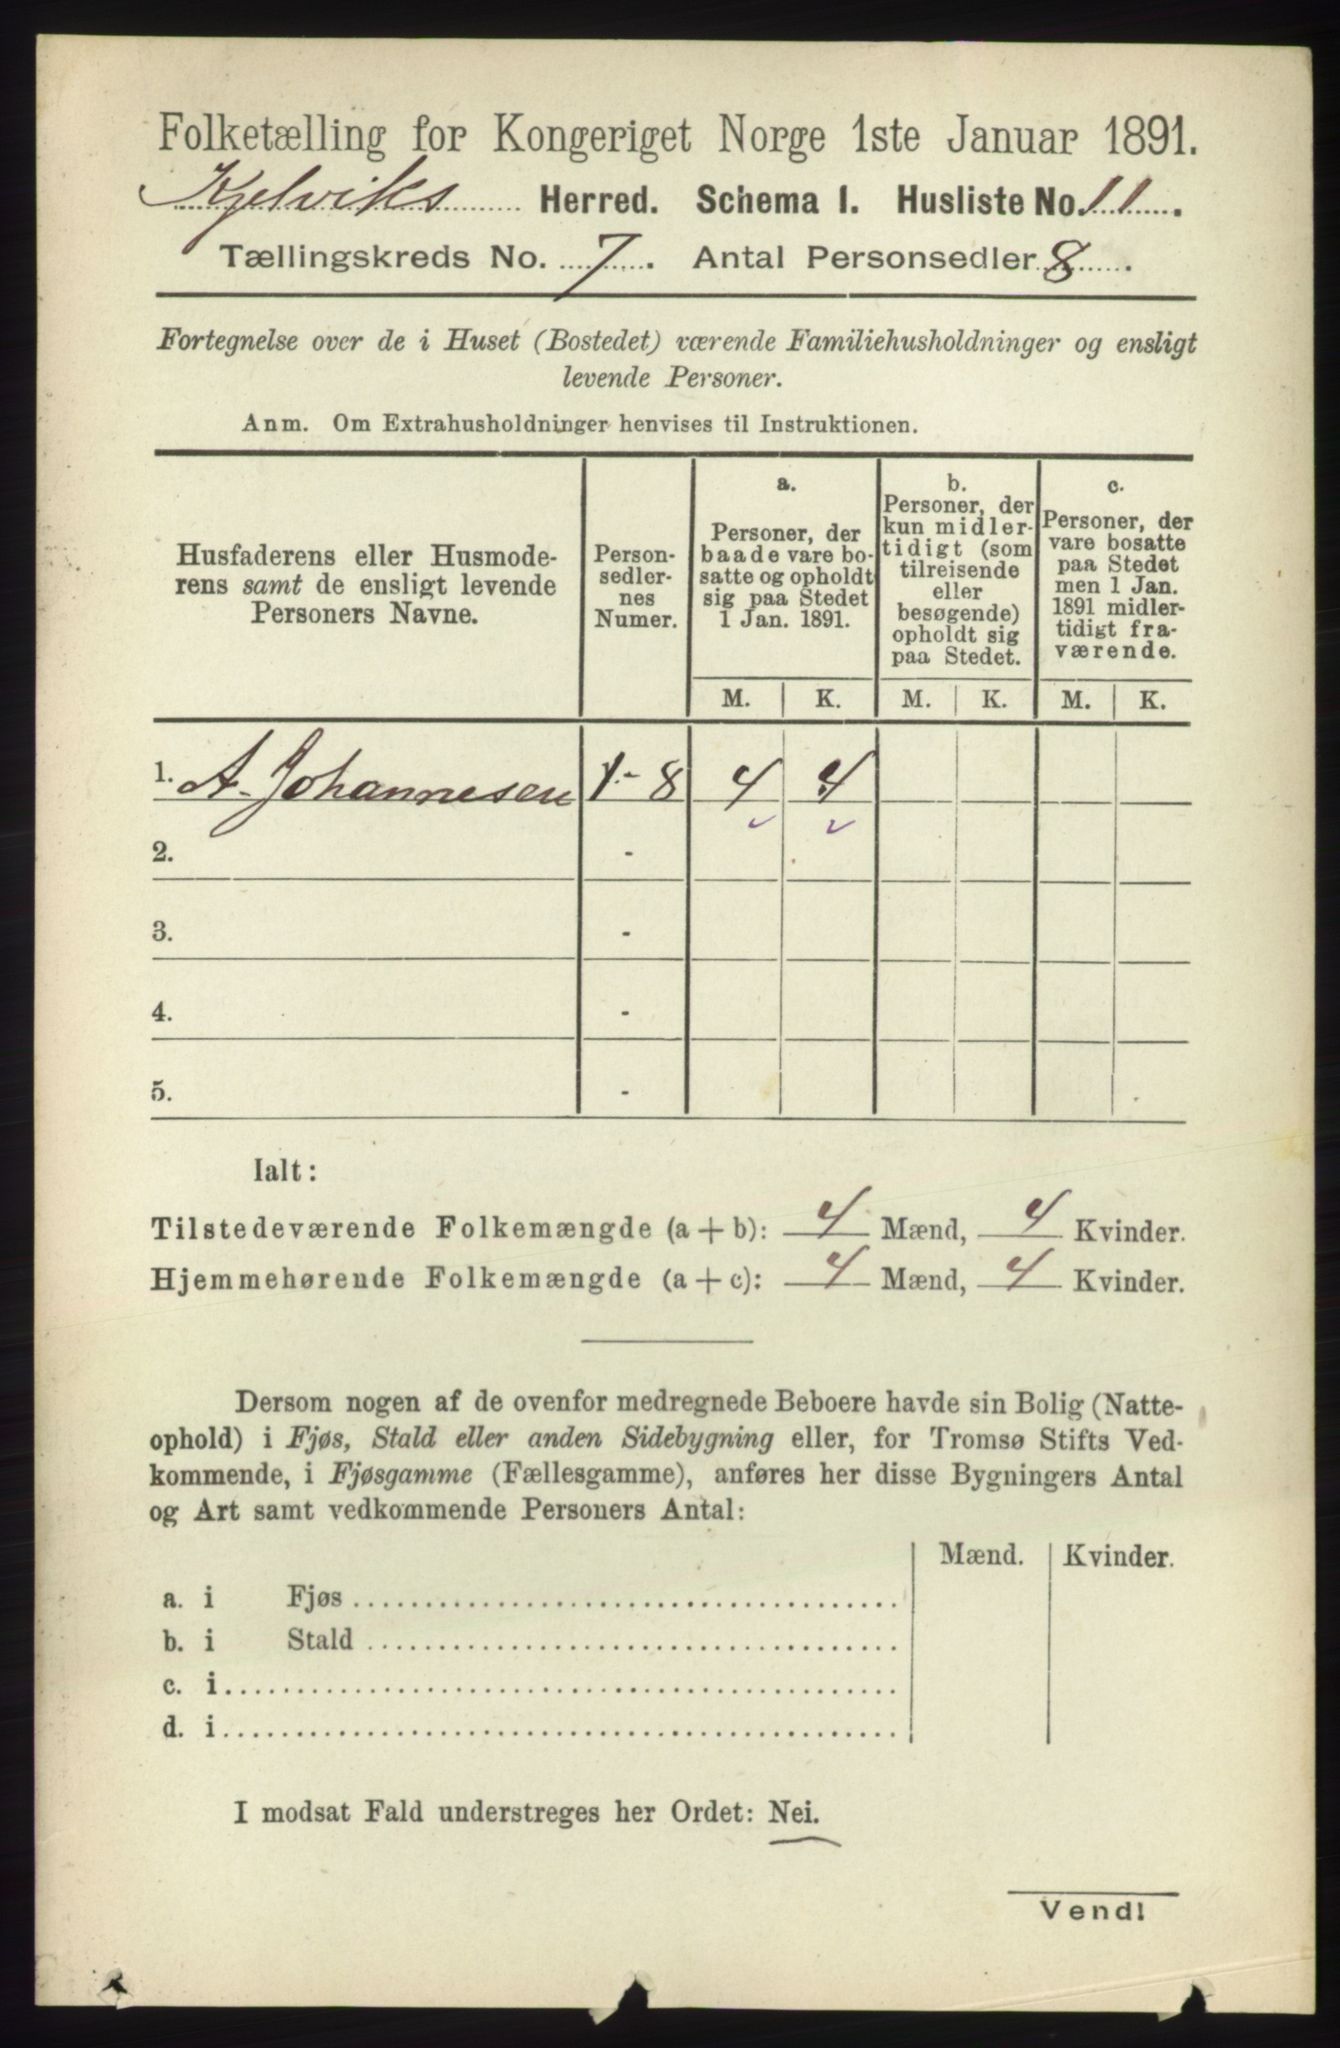 Folketælling for Kongeriget Norge 1ste Januar 1891.
Kjelviks Herred. Schema I. Husliste No. 11.
Tællingskreds No. 7. Antal Personsedler 8.
Fortegnelse over de i Huset (Bostedet) værende Familiehusholdninger og ensligt
levende Personer.
Anm. Om Extrahusholdninger henvises til Instruktionen.
Husfaderens eller Husmode-
rens samt de ensligt levende
Personers Navne.
Person-
sedler-
nes
Numer.
a.
Personer, der
baade vare bo-
satte og opholdt
sig paa Stedet
1 Jan. 1891.
b.
Personer, der
kun midler-
tidigt (som
tilreisende
eller
besøgende)
opholdt sig
paa Stedet.
c.
Personer, der
vare bosatte
paa Stedet
men 1 Jan.
1891 midler-
tidigt fra-
værende.
M. K. M. K. M. K.
1. A. Johannesen 1-8 4 4
2. -
3. -
4. -
5. -
Ialt:
Tilstedeværende Folkemængde (a + b): 4 Mænd, 4 Kvinder.
Hjemmehørende Folkemængde (a + c): 4 Mænd, 4 Kvinder.
Dersom nogen af de ovenfor medregnede Beboere havde sin Bolig (Natte-
ophold) i Fjøs, Stald eller anden Sidebygning eller, for Tromsø Stifts Ved-
kommende, i Fjøsgamme (Fællesgamme), anføres her disse Bygningers Antal
og Art samt vedkommende Personers Antal:
Mænd. Kvinder.
a. i Fjøs
b. i Stald
c. i
d. i
I modsat Fald understreges her Ordet: Nei.
Vend!